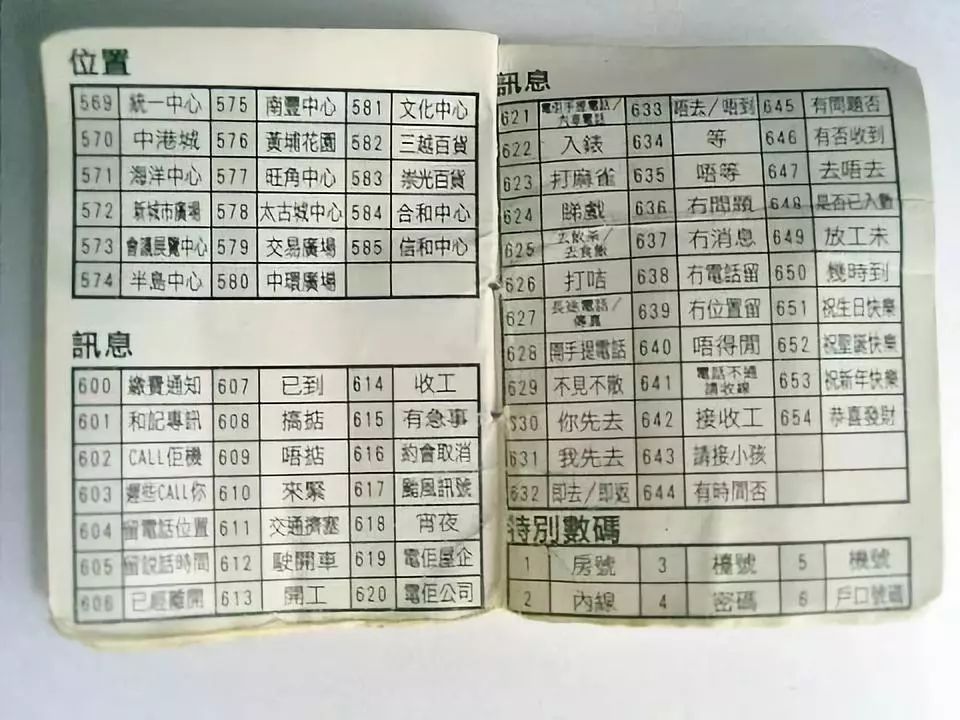 位置
569 統一中心 575 南豐中心 581 文化中心
570 中港城 576 黃埔花園 582 三越百貨
571 海洋中心 577 旺角中心 583 崇光百貨
572 新城市廣場 578 太古城中心 584 合和中心
573 會議展覽中心 579 交易廣場 585 信和中心
574 半島中心 580 中環廣場
訊息
600 繳費通知 607 已到 614 收工
601 和記專訊 608 搞掂 615 有急事
602 CALL佢機 609 唔掂 616 約會取消
603 遲些CALL你 610 來緊 617 颱風訊號
604 留電話位置 611 交通擠塞 618 宵夜
605 留説話時間 612 駛開車 619 電佢屋企
606 已經離開 613 開工 620 電佢公司
訊息
621 電手提電話/ 633 唔去/唔到 645 有問題否
622 入錶 634 等 646 有否收到
623 打麻雀 635 唔等 647 去唔去
624 睇戲 636 冇問題 648 是否已入數
625 去飲茶/去食飯 637 冇消息 649 放工未
626 打咭 638 冇電話留 650 幾時到
627 長途電話/傳真 639 冇位置留 651 祝生日快樂
628 開手提電話 640 唔得閒 652 祝聖誕快樂
629 不見不散 641 電話不通請收線 653 祝新年快樂
630 你先去 642 接收工 654 恭喜發財
631 我先去 643 請接小孩
632 即去/即返 644 有時間否
特別數碼
1 房號 3 檯號 5 機號
2 內線 4 密碼 6 戶口號碼